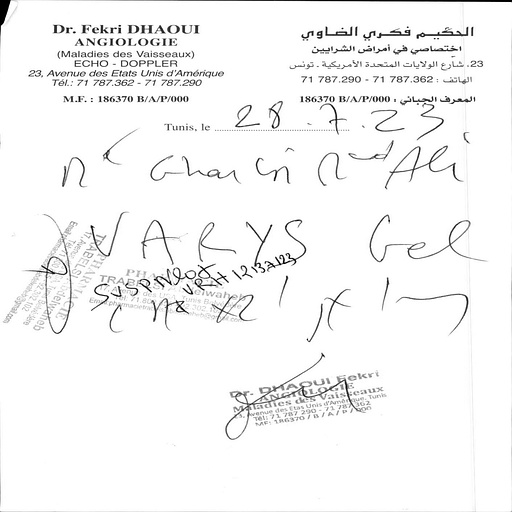 Dr. Fekri DHAOUI
ANGIOLOGIE
(Maladies des Vaisseaux)
ECHO - DOPPLER
23, Avenue des Etats Unis d'Amérique
Tél.: 71 787.362 - 71 787.290
M.F. : 186370 B/A/P/000
الحكيم فكري الضاوي
اختصاصي في أمراض الشرايين
23، شارع الولايات المتحدة الأمريكية - تونس
الهاتف : 787.362 71 - 787.290 71
المعرف الجبائي : 186370 B/A/P/000
Tunis, le 28.7.23
Mr Gharbi Med Ali
VARYS Gel
PHARMACIE
Dr. DHAOUI Fekri
ANGIOLOGIE
Maladies des Vaisseaux
23, Avenue des Etas Unis d'Amérique, Tunis
Tél: 71 787 290 - 71 787 362
MF: 186370 / B / A / P / 000